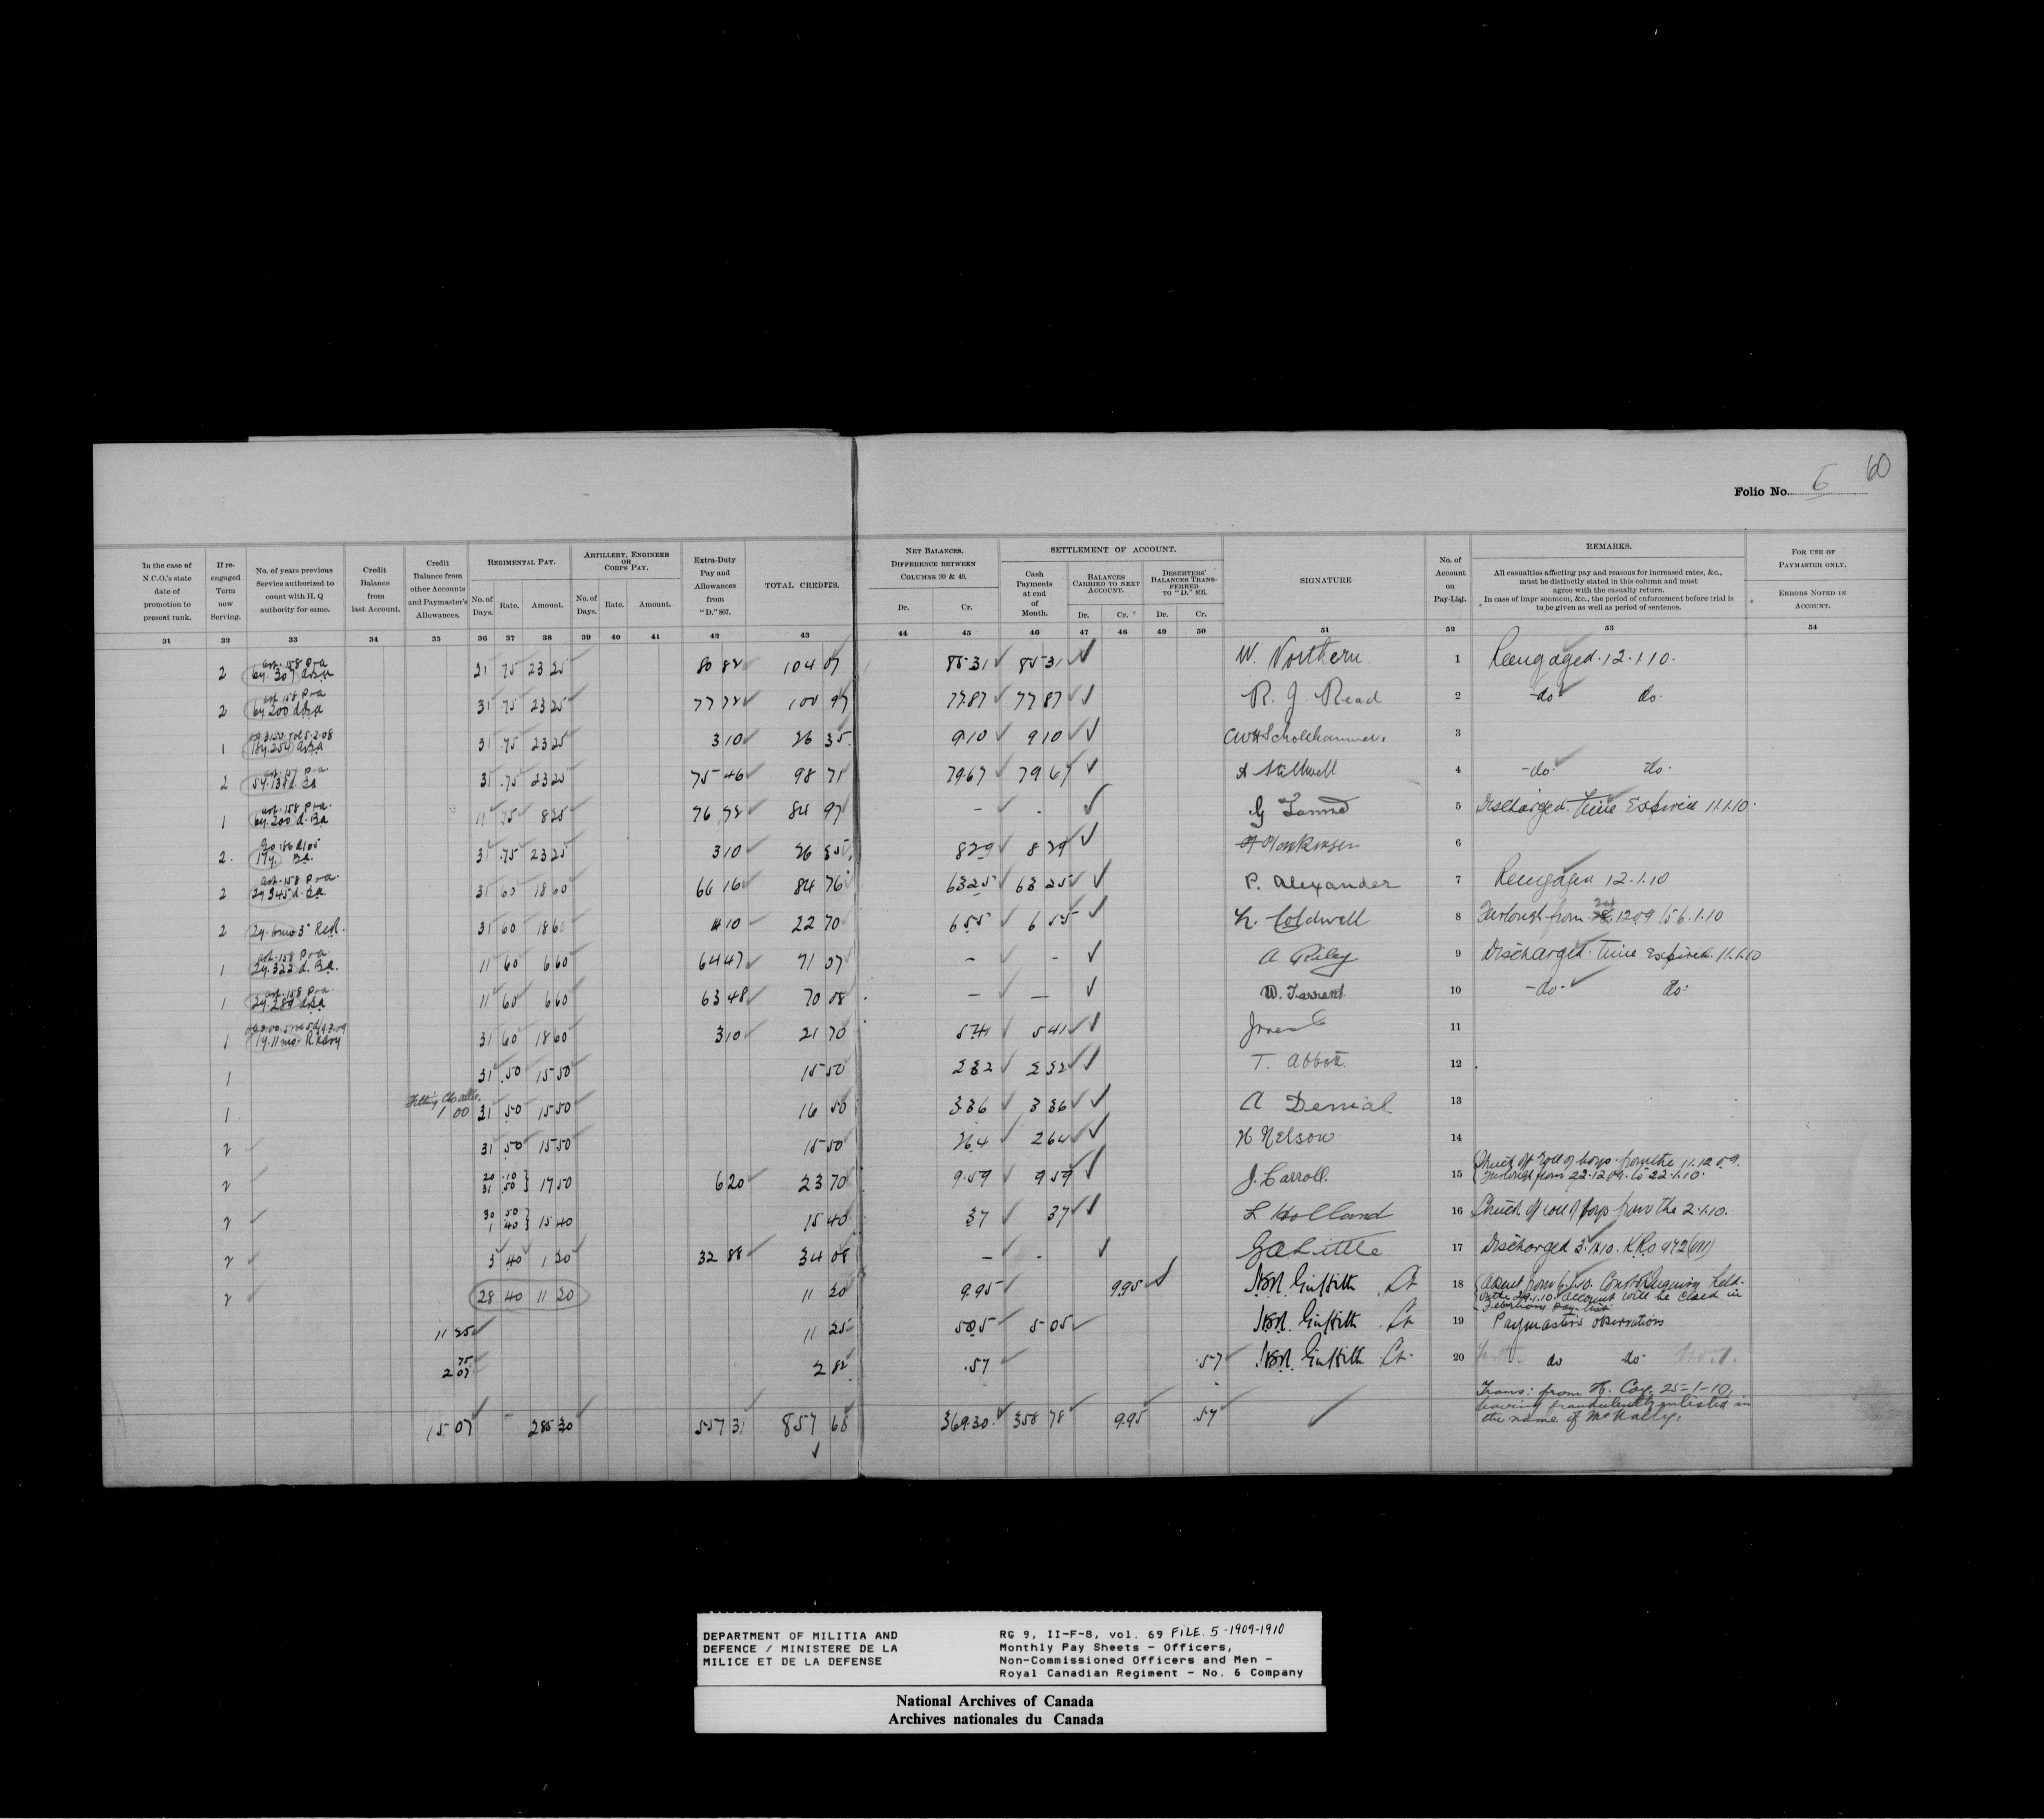 60
Folio No. 5
In the case of N.C.O.'s state date of promotion to present rank.
If re-engaged Term now Serving.
No. of years previous Service authorized to count with H. Q authority for same.
Credit Balance from last Account.
Credit Balance from other Accounts and Paymaster's Allowances.
REGIMENTAL PAY.
No. of Days. Rate. Amount.
ARTILLERY, ENGINEER OR CORPS PAY.
No. of Days. Rate. Amount.
Extra-Duty Pay and Allowances from "D." 807.
TOTAL CREDITS.
NET BALANCES.
DIFFERENCE BETWEEN COLUMNS 30 & 40.
Dr. Cr.
SETTLEMENT OF ACCOUNT.
Cash Payments at end of Month.
BALANCES CARRIED TO NEXT ACCOUNT.
Dr. Cr.
DESERTERS' BALANCES TRANSFERRED TO "D." 806.
Dr. Cr.
SIGNATURE
No. of Account on Pay-List.
REMARKS.
All casualties affecting pay and reasons for increased rates, &c., must be distinctly stated in this column and must agree with the casualty return.
In case of imprisonment, &c., the period of enforcement before trial is to be given as well as period of sentence.
FOR USE OF PAYMASTER ONLY.
ERRORS NOTED IN ACCOUNT.
31 32 33 34 35 36 37 38 39 40 41 42 43 44 45 46 47 48 49 50 51 52 53 54
2 31 .75 23 25 80 82 104 07 85 31 85 31 W. Northern 1 Reengaged. 12.1.10.
2 31 .75 23 25 77 72 100 97 77 87 77 87 R. J. Read 2 -do- do.
1 31 .75 23 25 3 10 26 35 9 10 9 10 3
2 31 .75 23 25 75 46 98 71 79 67 79 67 A Stillwell 4 -do- do.
1 11 .75 8 25 76 72 84 97 - - 5 Discharged. Time Expired 11.1.10.
2 31 .75 23 25 3 10 26 35 8 29 8 29 6
2 31 60 18 60 66 16 84 76 63 25 63 25 P. Alexander 7 Reengaged 12.1.10
2 31 60 18 60 4 10 22 70 6 55 6 55 Coldwell 8 Furlough from 12 09 to 6.1.10
1 11 60 6 60 64 47 71 07 - - A Riley 9 Discharged. Time Expired. 11.1.10
1 11 60 6 60 63 48 70 08 - - W. Tarrant 10 -do- do-
1 31 60 18 60 3 10 21 70 5 41 5 41 11
1 31 .50 15 50 15 50 2 32 2 32 T. Abbott 12
Fitting Clo allce.
1 1 00 31 .50 15 50 16 50 3 36 3 36 A Denial 13
2 31 .50 15 50 15 50 2 64 2 64 H Nelson 14
2 20 .10 31 .50 } 17 50 6 20 23 70 9 59 9 59 J. Carroll. 15 Struck off roll of boys from the 11.12 09. Furlough from 22.12 09. to 22.1.10.
2 30 50 1 40 } 15 40 15 40 37 37 L Holland 16 Struck off roll of boys from the 2.1.10.
2 3 40 1 20 32 88 34 08 - - G A Little 17 Discharged 3.1.10. K.R.O
2 28 40 11 20 11 20 9.95 9.95 Griffith Lt 18 Absent from Court of Enquiry held. on the account will be closed in February Pay-list
11 25 11 25 5 05 5 05 Griffith Lt 19 Paymaster's observations
75
2 07 2 82 .57 .57 Griffith Lt. 20 do do
Trans: from H. Coy. 25-1-10, having fraudulently enlisted in the name of McNally.
15 07 285 30 557 31 857 68 369.30 358 78 9.95 .57
DEPARTMENT OF MILITIA AND
DEFENCE / MINISTERE DE LA
MILICE ET DE LA DEFENSE
RG 9, II-F-8, vol. 69 FILE. 5-1909-1910
Monthly Pay Sheets - Officers,
Non-Commissioned Officers and Men -
Royal Canadian Regiment - No. 6 Company
National Archives of Canada
Archives nationales du Canada